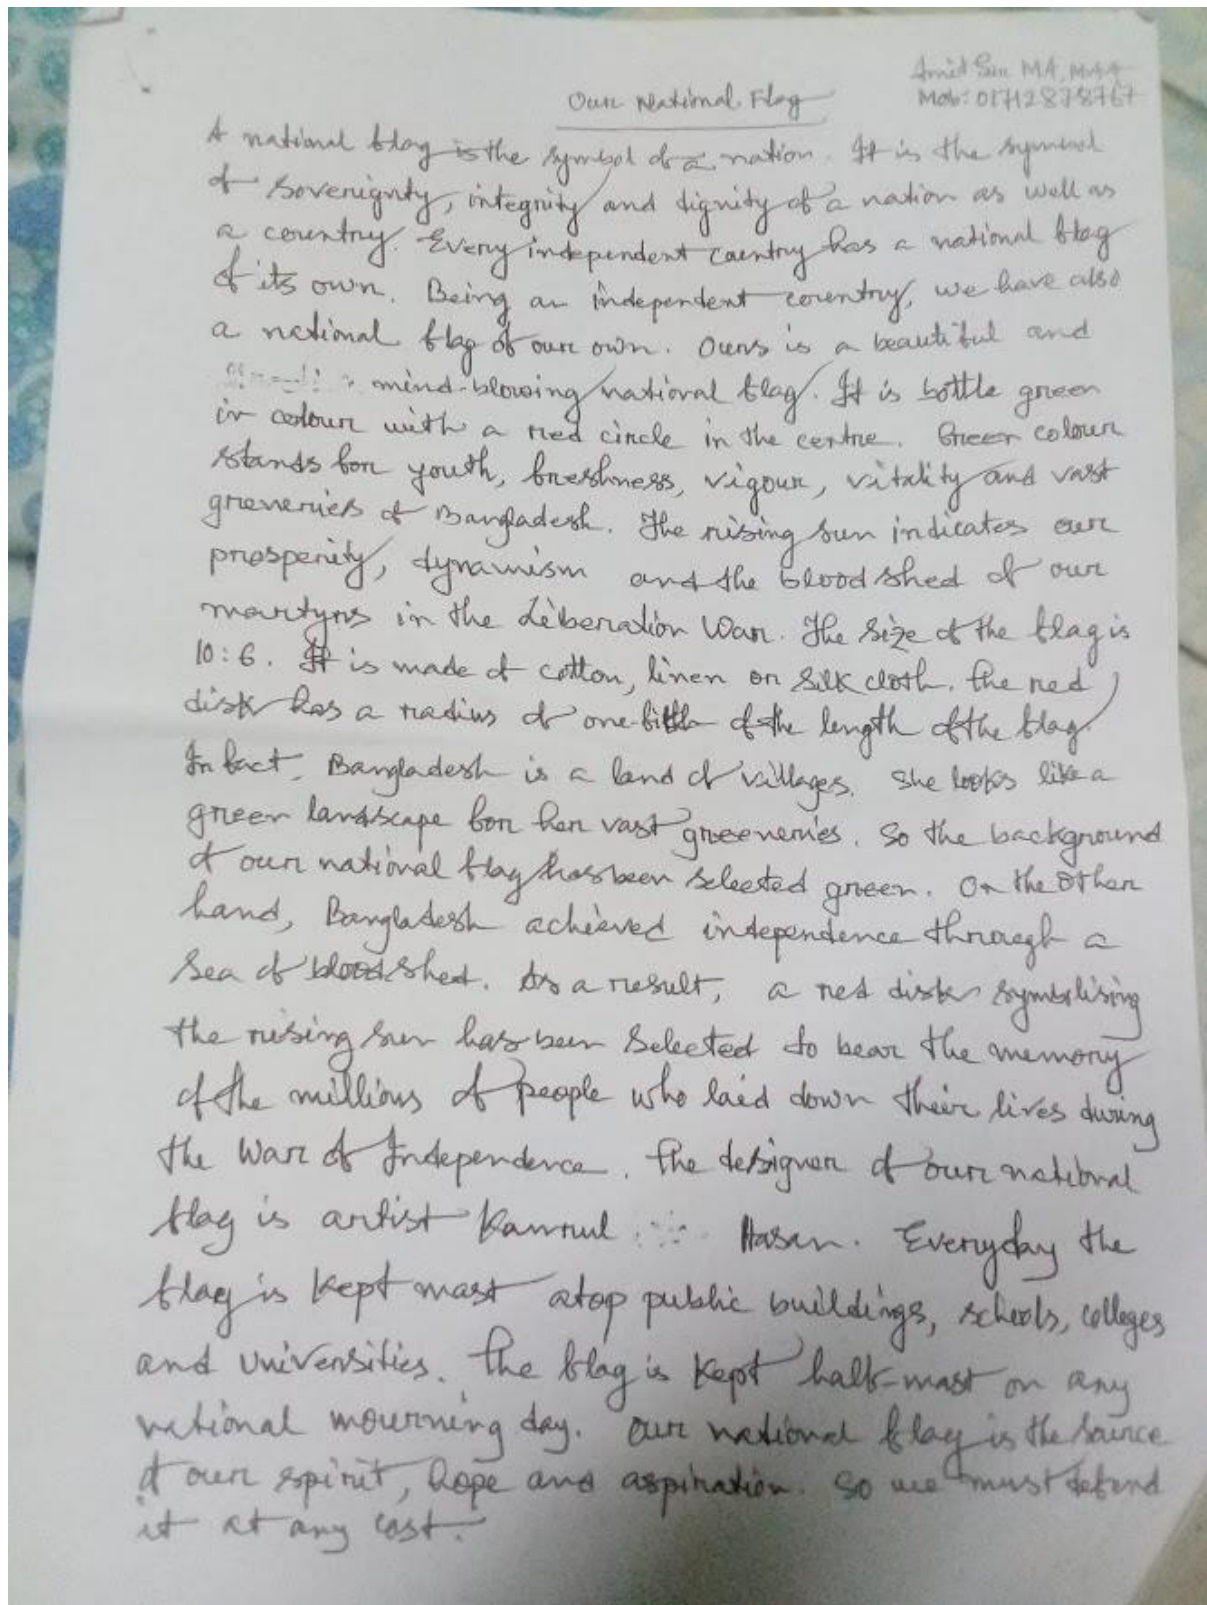 Amit Sen MA, M
Mob: 01712878767
Our National Flag
A national flag is the symbol of a nation. It is the symbol
of soverignty, integrity and dignity of a nation as well as
a country. Every independent country has a national flag
of its own. Being an independent country, we have also
a national flag of our own. Ours is a beautiful and
mind-blowing national flag. It is bottle green
in colour with a red circle in the centre. Green colour
stands for youth, freshness, vigour, vitality and vast
greneries of Bangladesh. The rising sun indicates our
prosperity, dynamism and the bloodshed of our
martyrs in the Liberation War. The size of the flag is
10:6. It is made of cotton, linen or silk cloth. The red
disk has a radius of one-fifth of the length of the flag.
In fact, Bangladesh is a land of villages. She looks like a
green landscape for her vast greeneries. So the background
of our national flag has been selected green. On the other
hand, Bangladesh achieved independence through a
sea of bloodshed. As a result, a red disk symbolising
the rising sun has been selected to bear the memory
of the millions of people who laid down their lives during
the War of Independence. The designer of our national
flag is artist Kamrul Hasan. Everyday the
flag is kept mast atop public buildings, schools, colleges
and universities. The flag is kept half-mast on any
national mourning day. Our national flag is the source
of our spirit, hope and aspiration. So we must defend
it at any cost.